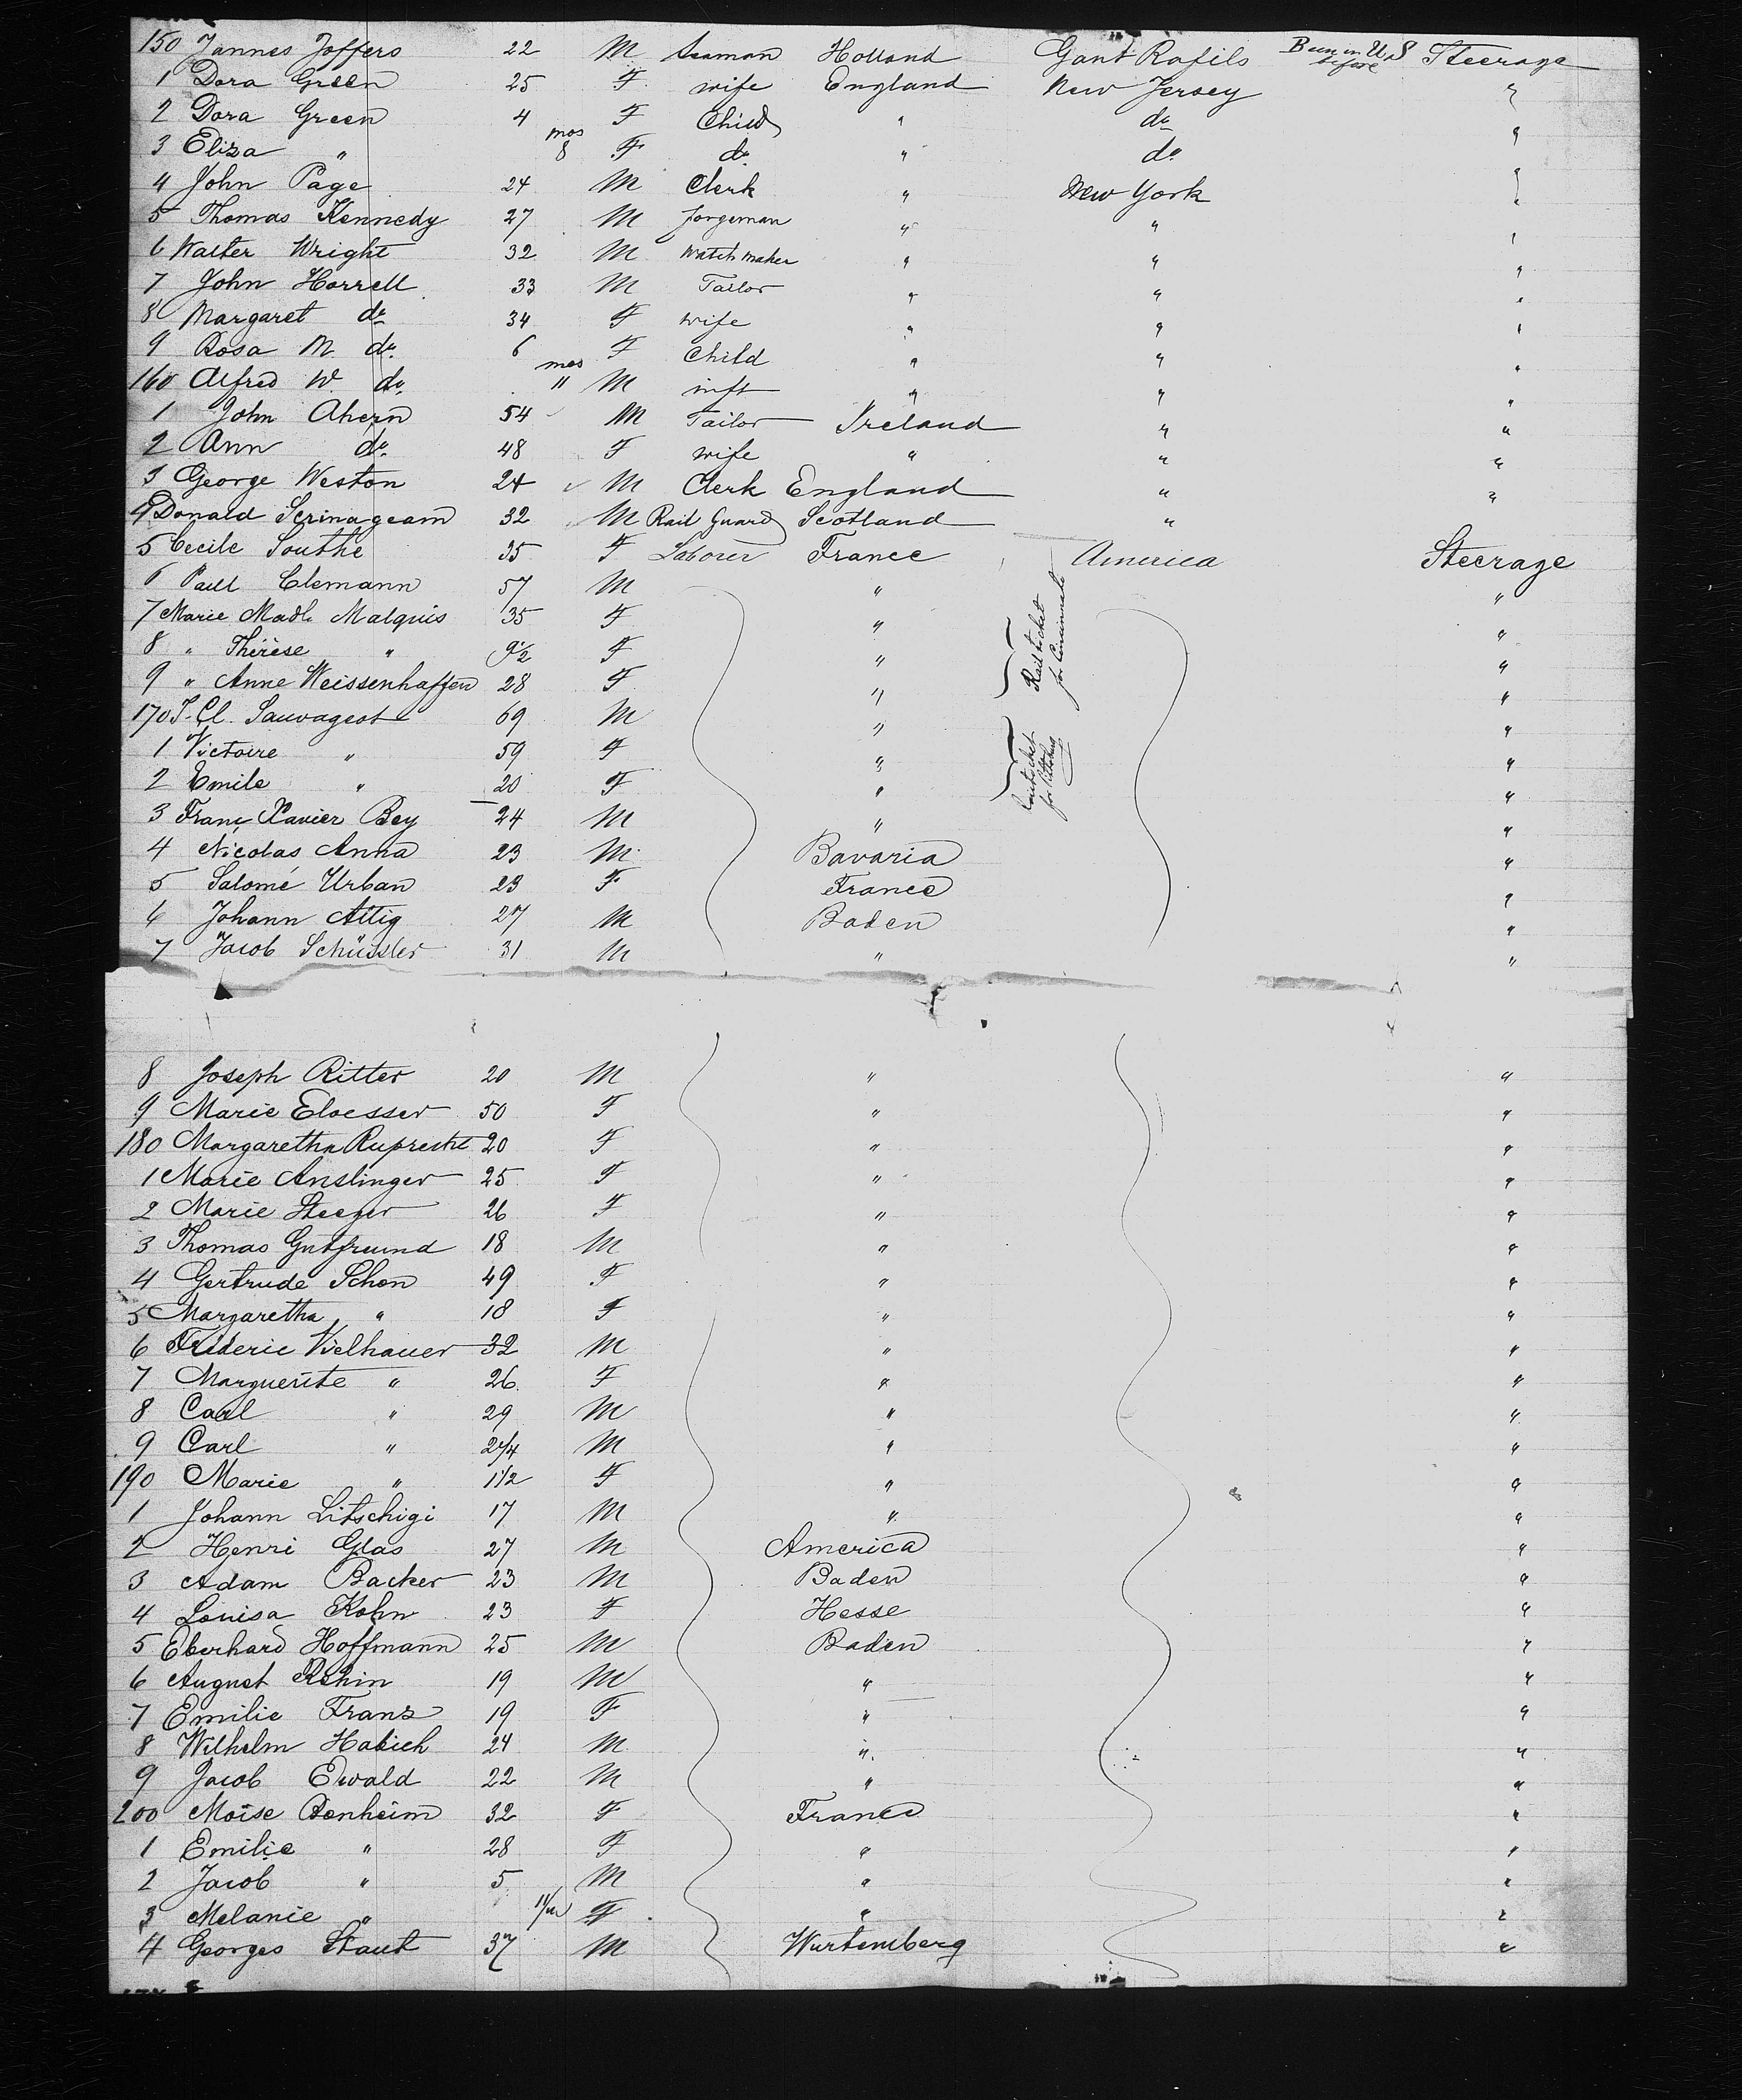 150 Jannes Joffers 22 M Seaman Holland Gant Rafils Been in U.S before Steerage
1 Dora Green 25 F wife England New Jersey "
2 Dora Green 4 F Child " do "
3 Eliza " mos 8 F do " do "
4 John Page 24 M Clerk " New York "
5 Thomas Kennedy 27 M Forgeman " " "
6 Walter Wright 32 M Watch maker " " "
7 John Horrell 33 M Tailor " " "
8 Margaret do 34 F wife " " "
9 Rosa M do 6 F Child " " "
160 Alfred W. do mos 11 M inft " " "
1 John Ahern 54 M Tailor Ireland " "
2 Ann do 48 F wife " " "
3 George Weston 24 M Clerk England " "
4 Donald Scrinageam 32 M Rail Guard Scotland "
5 Cecile Southe 35 F Laborer France America Steerage
6 Paul Clemann 57 M " "
7 Marie Madl. Malquis 35 F " Rail ticket for Cincinnati "
8 " Thérèse " 9 1/2 F " "
9 " Anne Weissenhaffen 28 F " "
170 J. Cl. Sauvageot 69 M " "
1 Victoire " 59 F " ticket for Pittsburg "
2 Emile " 20 F " "
3 Franç Xavier Bey 24 M " "
4 Nicolas Anna 23 M Bavaria "
5 Salomé Urban 23 F France "
6 Johann Attig 27 M Baden "
7 Jacob Schüssler 31 M " "
8 Joseph Ritter 20 M " "
9 Marie Eloesser 50 F " "
180 Margaretha Ruprecht 20 F " "
1 Marie Anslinger 25 F " "
2 Marie Steeger 26 F " "
3 Thomas Gutfreund 18 M " "
4 Gertrude Schon 49 F " "
5 Margaretha " 18 F " "
6 Fréderic Vielhauer 32 M " "
7 Marguerite " 26 F " "
8 Carl " 29 M " "
9 Carl " 2 1/4 M " "
190 Marie " 1 1/2 F " "
1 Johann Litschigi 17 M " "
2 Henri Glas 27 M America "
3 Adam Backer 23 M Baden "
4 Louisa Kohn 23 F Hesse "
5 Eberhard Hoffmann 25 M Baden "
6 August Rehin 19 M " "
7 Emilie Franz 19 F " "
8 Wilhelm Habich 24 M " "
9 Jacob Ewald 22 M " "
200 Moïse Benheim 32 F France "
1 Emilie " 28 F " "
2 Jacob " 5 M " "
3 Melanie " 11/12 F " "
4 Georges Staut 37 M Wurtemberg "